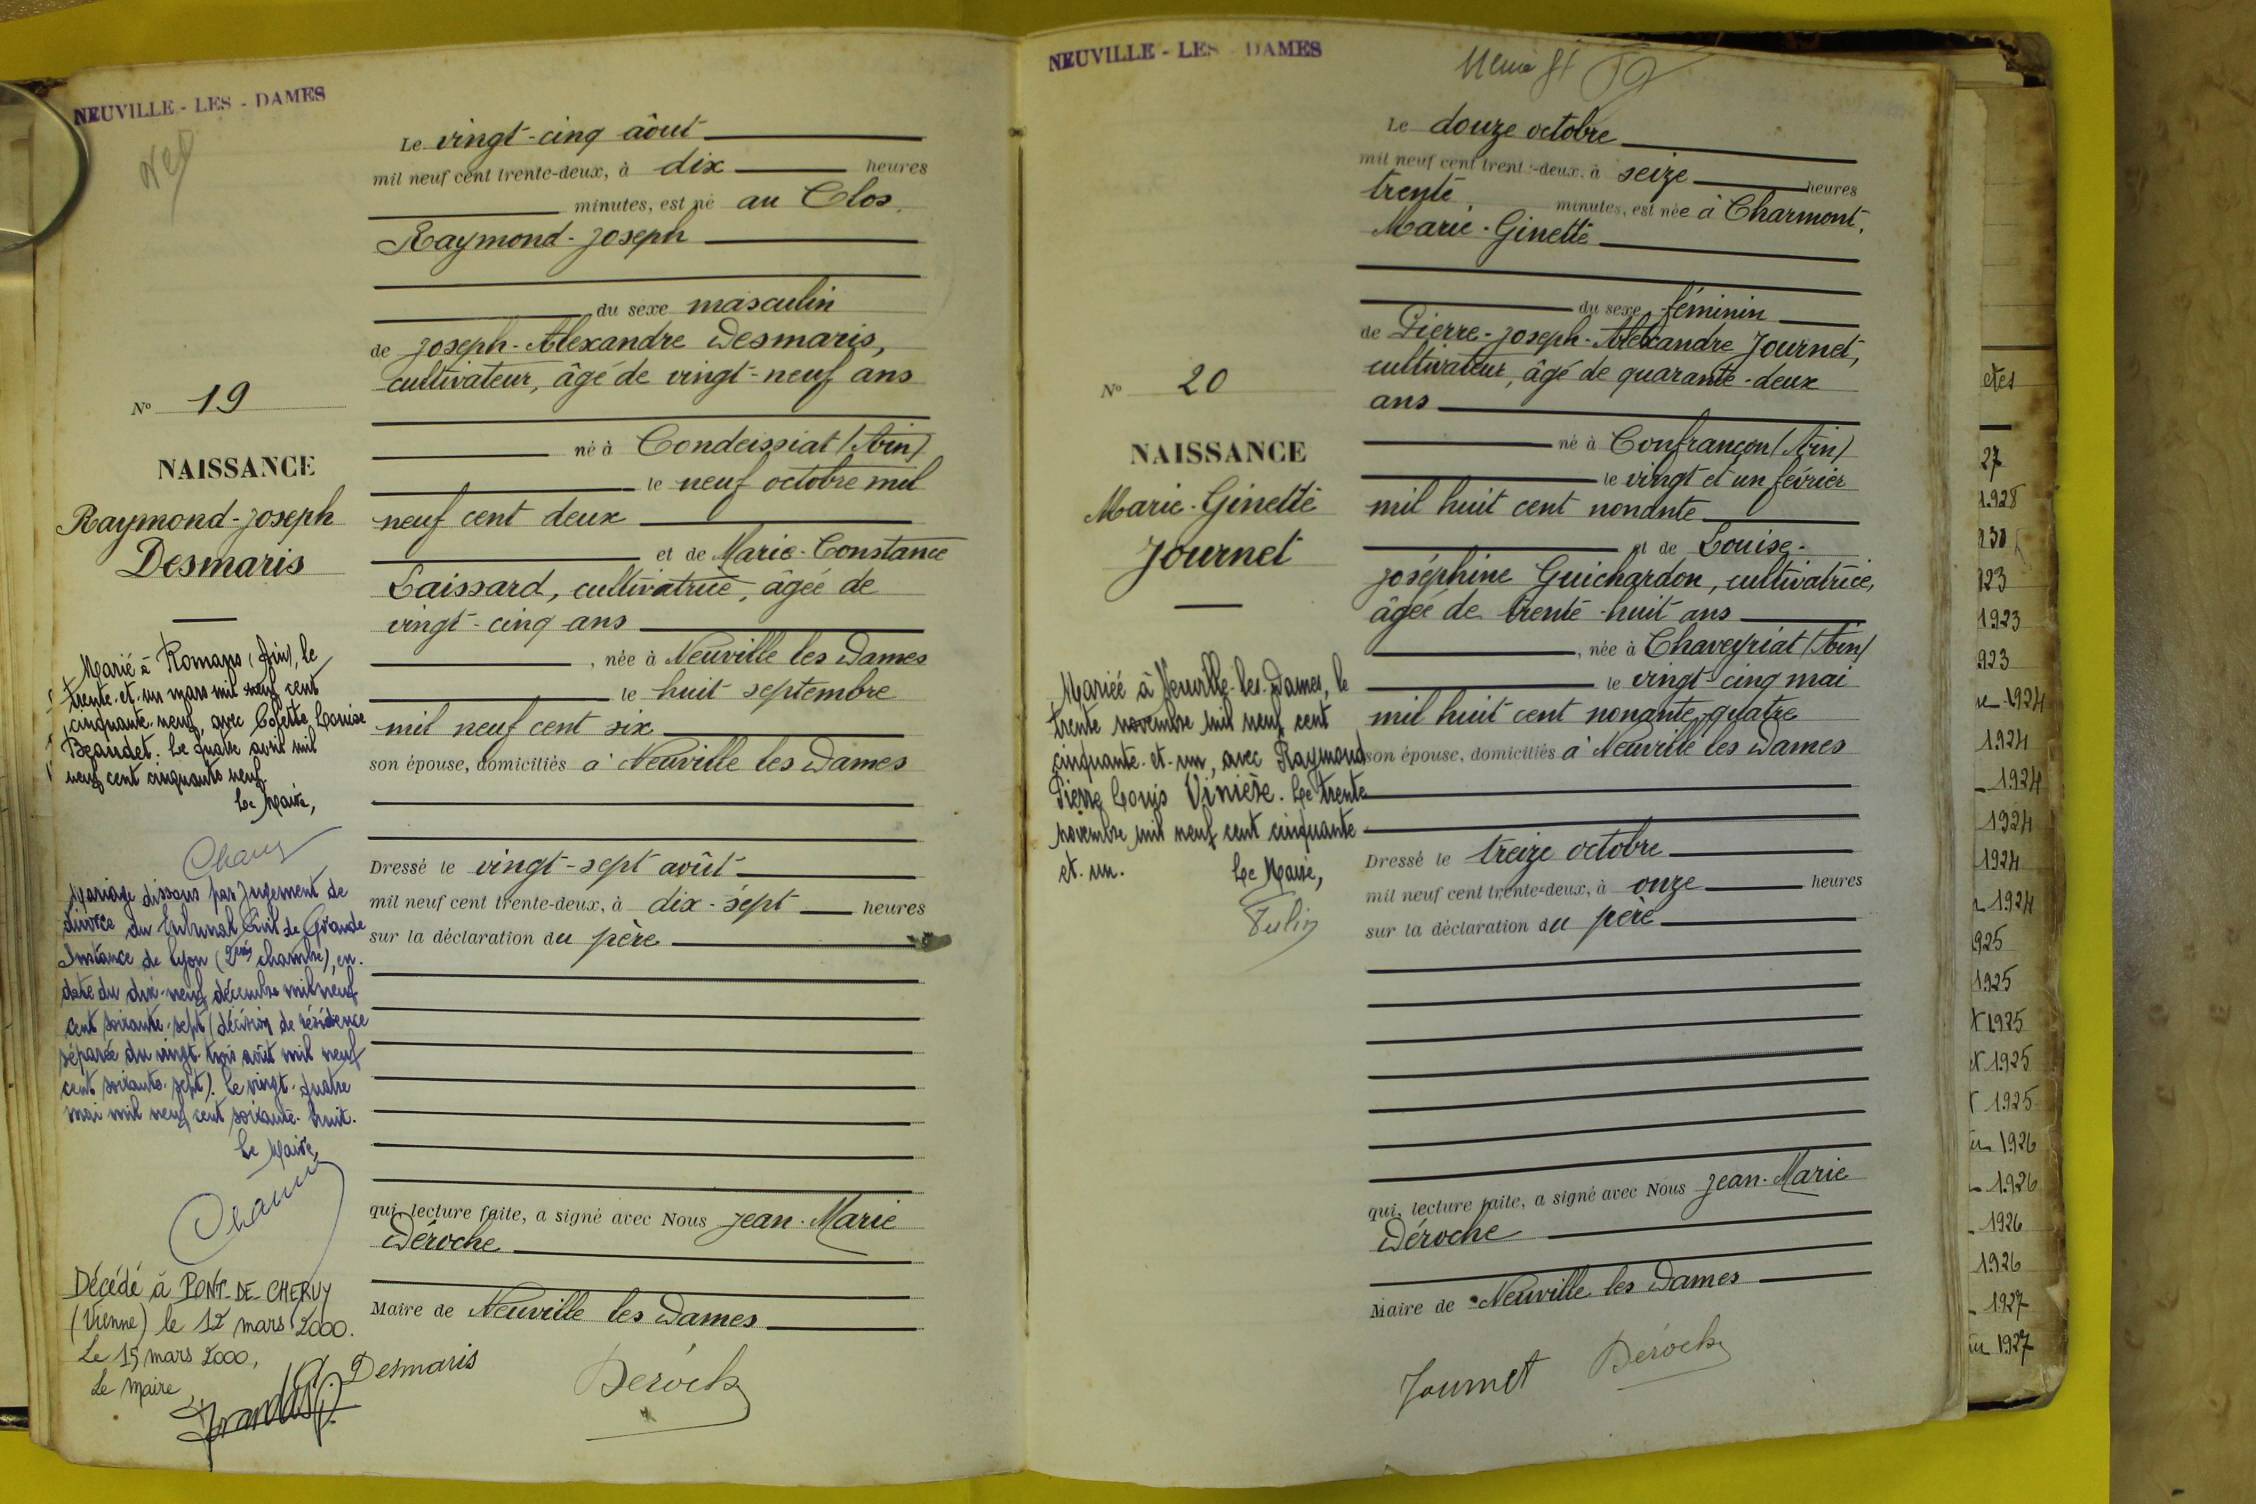 NEUVILLE - LES - DAMES
N° 19
NAISSANCE
Raymond-Joseph
Desmaris
Marié à Romans (Ain), le
trente-et-un mars mil neuf cent
cinquante-neuf, avec Colette Louise
Beaudet. Le quatre avril mil
neuf cent cinquante neuf.
Le Maire,
Mariage dissous par jugement de
divorce du Tribunal Civil de Grande
Instance de Lyon (2ème chambre), en
date du dix-neuf décembre mil neuf
cent soixante-sept (décision de résidence
séparée du vingt-trois août mil neuf
cent soixante-sept). Le vingt-quatre
mai mil neuf cent soixante-huit.
Le Maire,
Décédé à PONT-DE-CHERUY
le 12 mars 2000.
Le 15 mars 2000,
Le Maire
Le vingt-cinq âout
mil neuf cent trente-deux, à dix heures
minutes, est né au Clos.
Raymond-Joseph
du sexe masculin
de Joseph-Alexandre Desmaris,
cultivateur, âgé de vingt-neuf ans
né à Condeissiat (Ain)
le neuf octobre mil
neuf cent deux
et de Marie-Constance
Laissard, cultivatrice, âgée de
vingt-cinq ans
, née à Neuville les Dames
le huit septembre
mil neuf cent six
son épouse, domiciliés à Neuville les Dames
Dressé le vingt-sept août
mil neuf cent trente-deux, à dix-sept heures
sur la déclaration du père
qui, lecture faite, a signé avec Nous Jean-Marie
Déroche
Maire de Neuville les Dames
Desmaris
Déroche
NEUVILLE - LES - DAMES
N° 20
NAISSANCE
Marie-Ginette
Journet
Mariée à Neuville-les-Dames, le
trente novembre mil neuf cent
cinquante-et-un, avec Raymond
Pierre Louis Vinière. Le trente
novembre mil neuf cent cinquante
et-un.
Le Maire,
Le douze octobre
mil neuf cent trente-deux, à seize heures
trente. minutes, est née à Charmont.
Marie-Ginette
du sexe féminin
de Pierre-Joseph-Alexandre Journet,
cultivateur, âgé de quarante-deux
ans
né à Confrançon (Ain)
le vingt et un février
mil huit cent nonante
et de Louise-
Joséphine Guichardon, cultivatrice,
âgée de trente-huit ans
, née à Chaveyriat (Ain)
le vingt-cinq mai
mil huit cent nonante-quatre
son épouse, domiciliés à Neuville les Dames
Dressé le treize octobre
mil neuf cent trente-deux, à onze heures
sur la déclaration du père
qui, lecture faite, a signé avec Nous Jean-Marie
Déroche
Maire de Neuville les Dames
Journet
Déroche
27
1928
1923
923
1924
1924
1924
1924
1924
1924
925
1925
1925
1925
1925
1926
1926
1926
1926
1927
1927